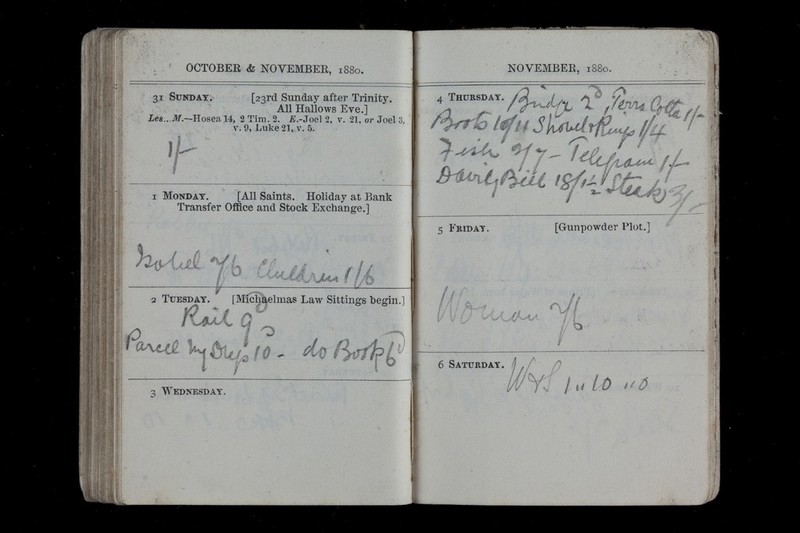 OCTOBER & NOVEMBER, 1880.
31 SUNDAY. [23rd Sunday after Trinity.
All Hallows Eve.]
Les...M.—Hosea 14, 2 Tim. 2. E.-Joel 2, v. 21, or Joel 3,
v. 9, Luke 21, v. 5.
1/-
1 MONDAY. [All Saints. Holiday at Bank
Transfer Office and Stock Exchange.]
Isobel 2/6 Children 1/6
2 TUESDAY. [Michaelmas Law Sittings begin.]
Rail 9D
Parcel my 10- do Books 6D
3 WEDNESDAY.
NOVEMBER, 1880.
4 THURSDAY. Bridge 2D, Terra Cotta 1/-
Boots 10/11 Shovel & Rings 1/4
Fish 2/7 - Telegram 1/-
Bill 18/1½ Steaks 3/-
5 FRIDAY. [Gunpowder Plot.]
Woman 2/6
6 SATURDAY. W&S 1"10"0